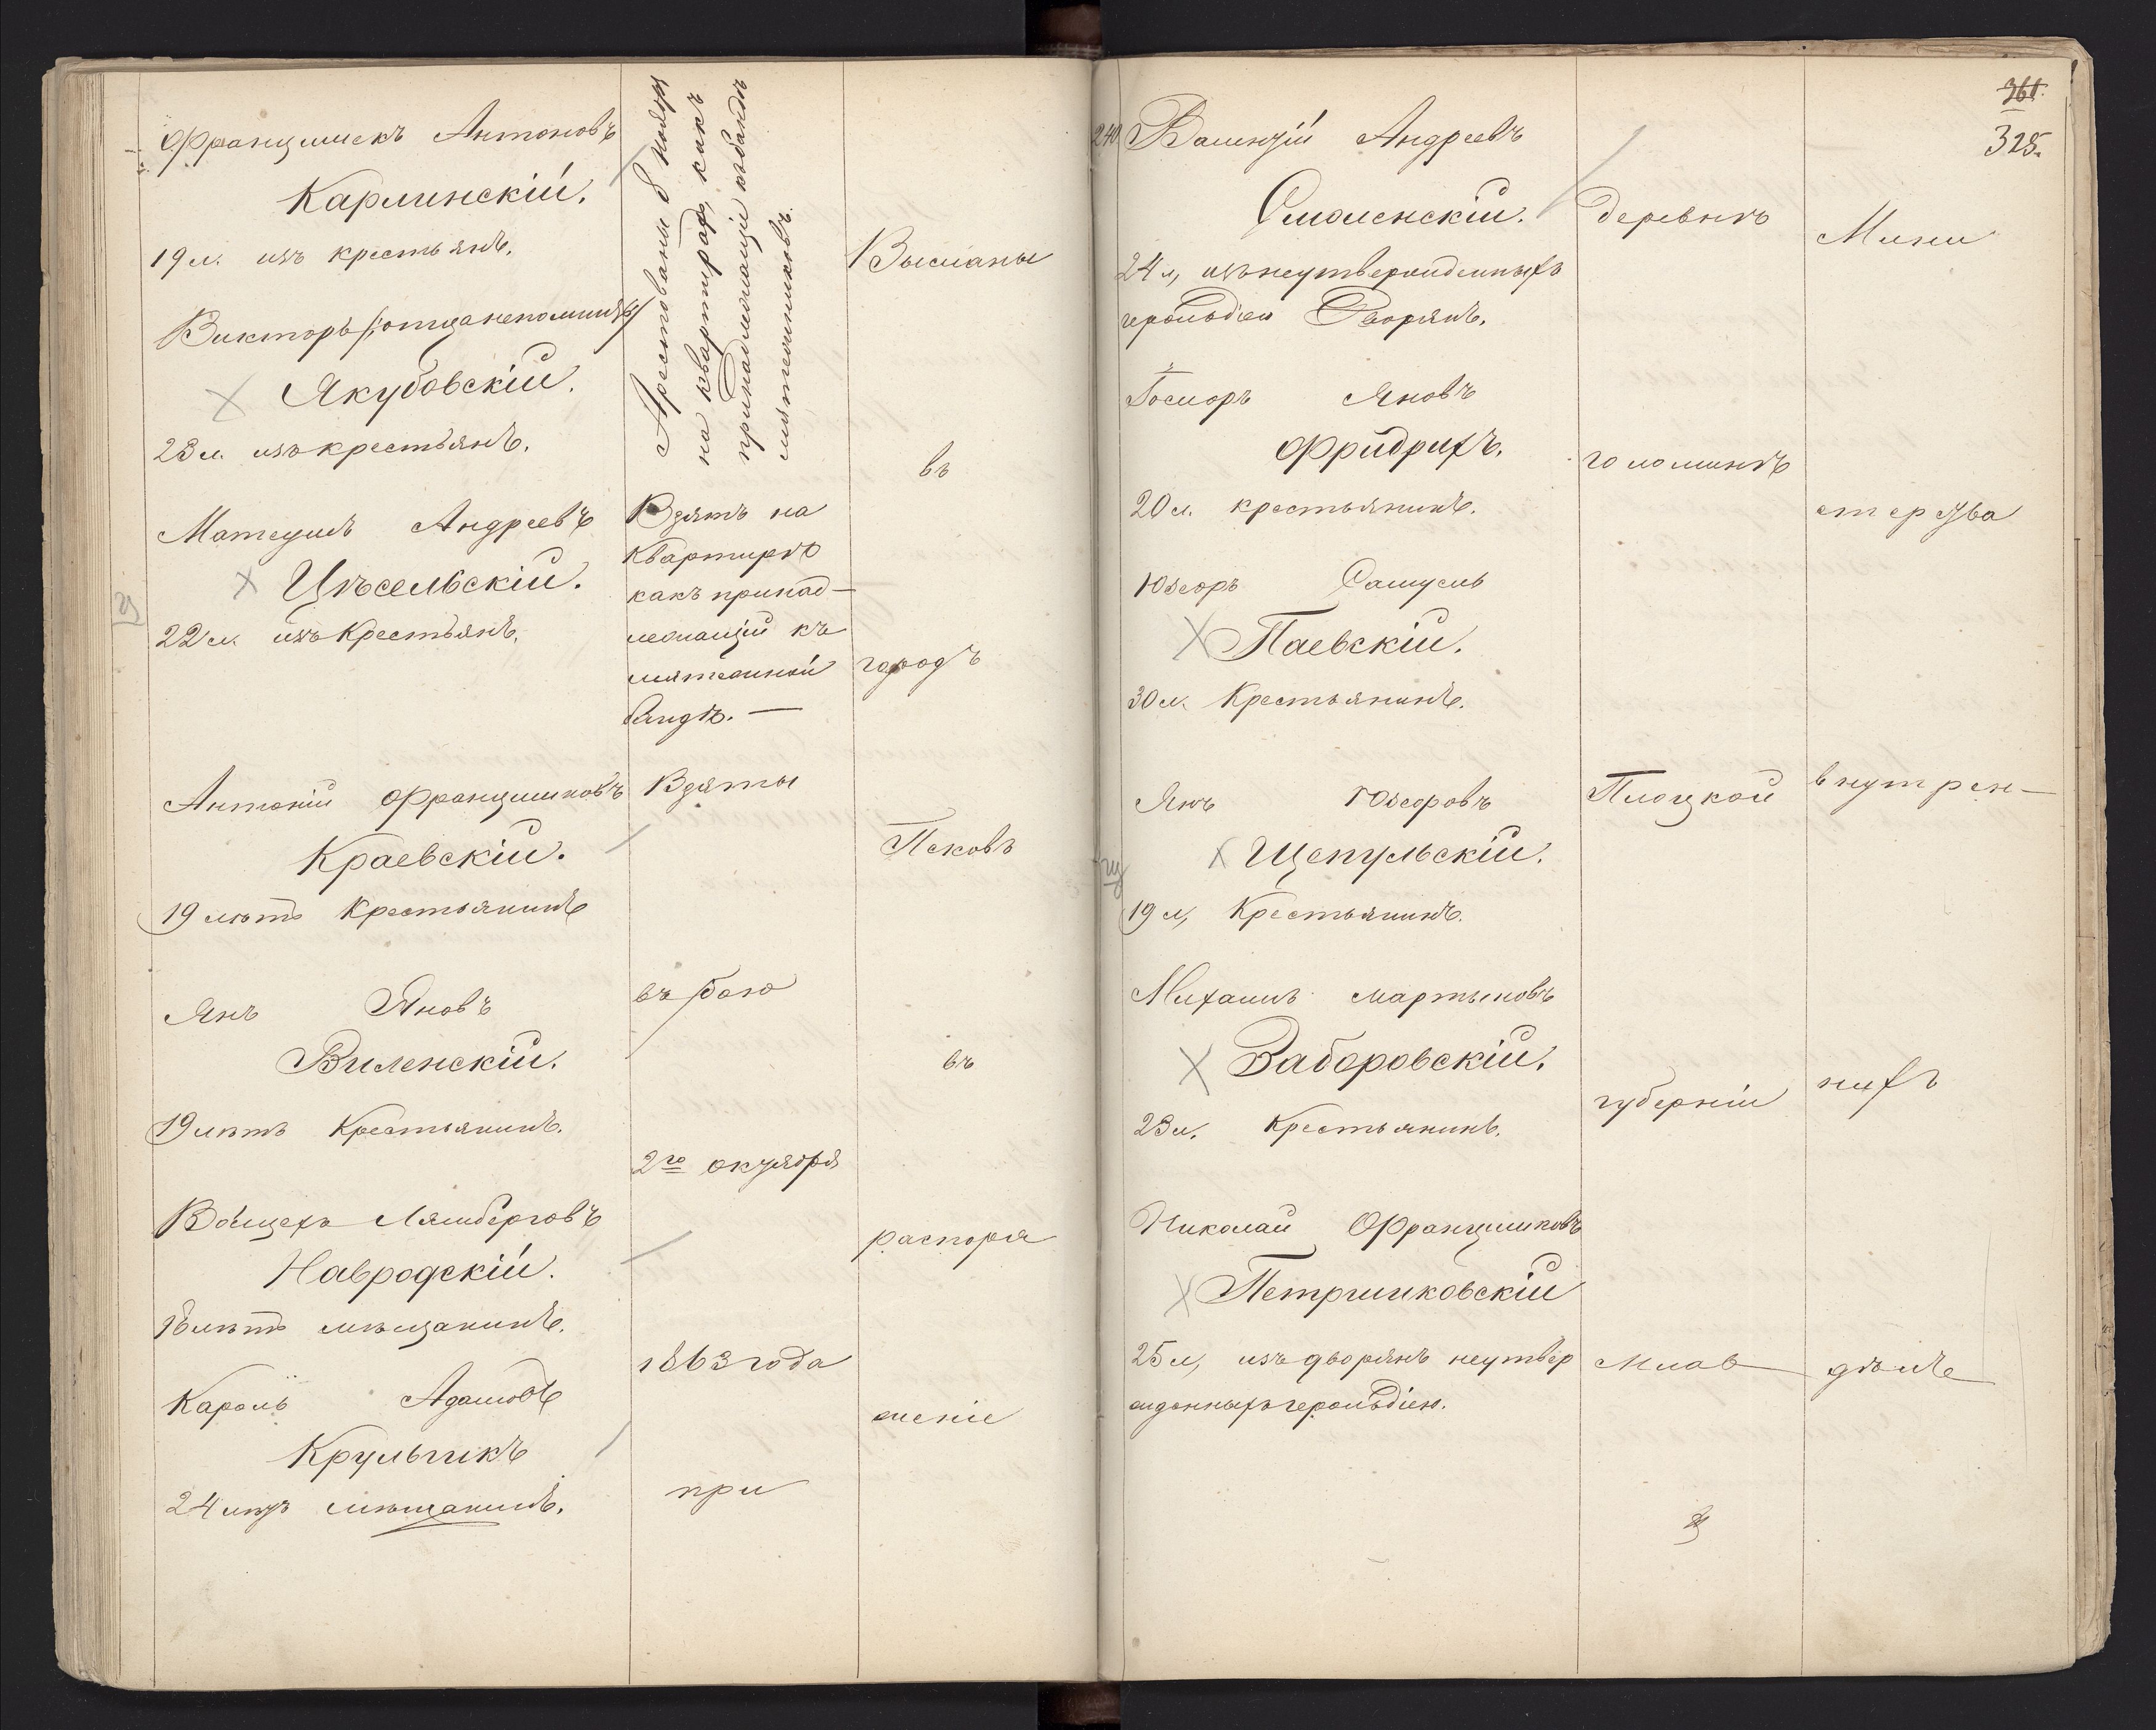 Францишекъ Антоновъ
Карлинскій.
19 л. изъ крестьянъ.
Викторъ /:отца непомнитъ:/
Якубовскій.
23 л. изъ крестьянъ.
Матеушъ Андреевъ
Цѣсельскій.
22 л. изъ Крестьянъ.
Антоній Францишковъ
Краевскій.
19 лѣтъ Крестьянинъ
Янъ Яновъ
Виленскій.
19 лѣтъ Крестьянинъ.
Войцехъ Лямберговъ
Навродскій.
18 лѣтъ мѣщанинъ.
Кароль Адамовъ
Крульчикъ
24 лѣтъ мѣщанинъ.
Арестованы 8 ноября
на квартирахъ, какъ
принадлежащіе къ бандѣ
мятежниковъ.
Взятъ на
Квартирѣ
какъ принад-
лежащій къ
мятежной
бандѣ. —
Взяты
въ бою
2го октября
1863 года
при
Высланы
въ
городъ
Псковъ
въ
распоря
женіе
361.
325.
240
Валенцій Андреевъ
Смоленскій.
24 л, изъ неутвержденныхъ
герольдіею Дворянъ.
Яновъ
Фридрихъ.
20 л. крестьянинъ.
Юзефъ Самуель
Паевскій.
30 л. Крестьянинъ.
Янъ Юзефовъ
Щепульскій.
19 л, Крестьянинъ.
Михаилъ Мартыновъ
Заборовскій.
23 л. Крестьянинъ.
Николай Францишковъ
Петришковскій
25 л, изъ дворянъ неутвер
жденныхъ герольдіею.
деревнѣ
Голоминѣ
Плоцкой
губерніи
Млав
Мини
стерства
внутрен-
нихъ
дѣлъ